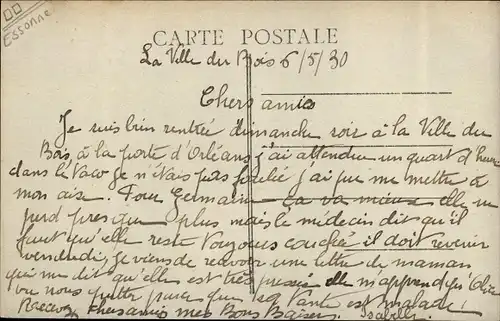 Essonne
CARTE POSTALE
La Ville du Bois 6/5/30
Chers amis
Je suis bien rentrée dimanche soir à la Ville du
Bois, à la porte d'Orléans j'ai attendu un quart d'heure
dans le Vaco je n'étais pas foulée j'ai pu me mettre à
mon aise. Pour Germain ça va mieux elle ne
perd presque plus mais le médecin dit qu'il
faut qu'elle reste toujours couchée il doit revenir
vendredi, je viens de recevoir une lettre de maman
qui me dit qu'elle est très pressée elle m'apprend que
va nous quitter parce que sa tante est malade
Recevez chers amis mes Bons Baisers. Isabelle